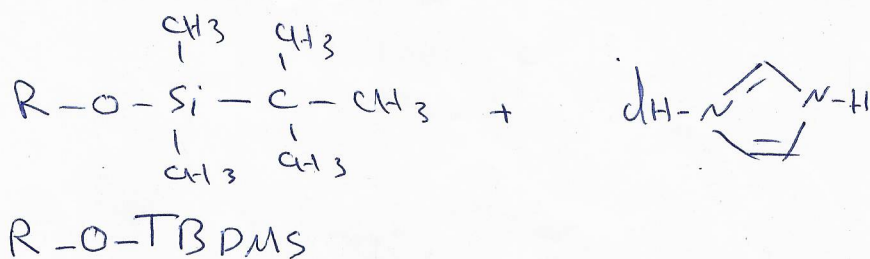 CH3 CH3
R-O-Si-C-CH3 + ClH-N N-H
CH3 CH3
R-O-TBDMS